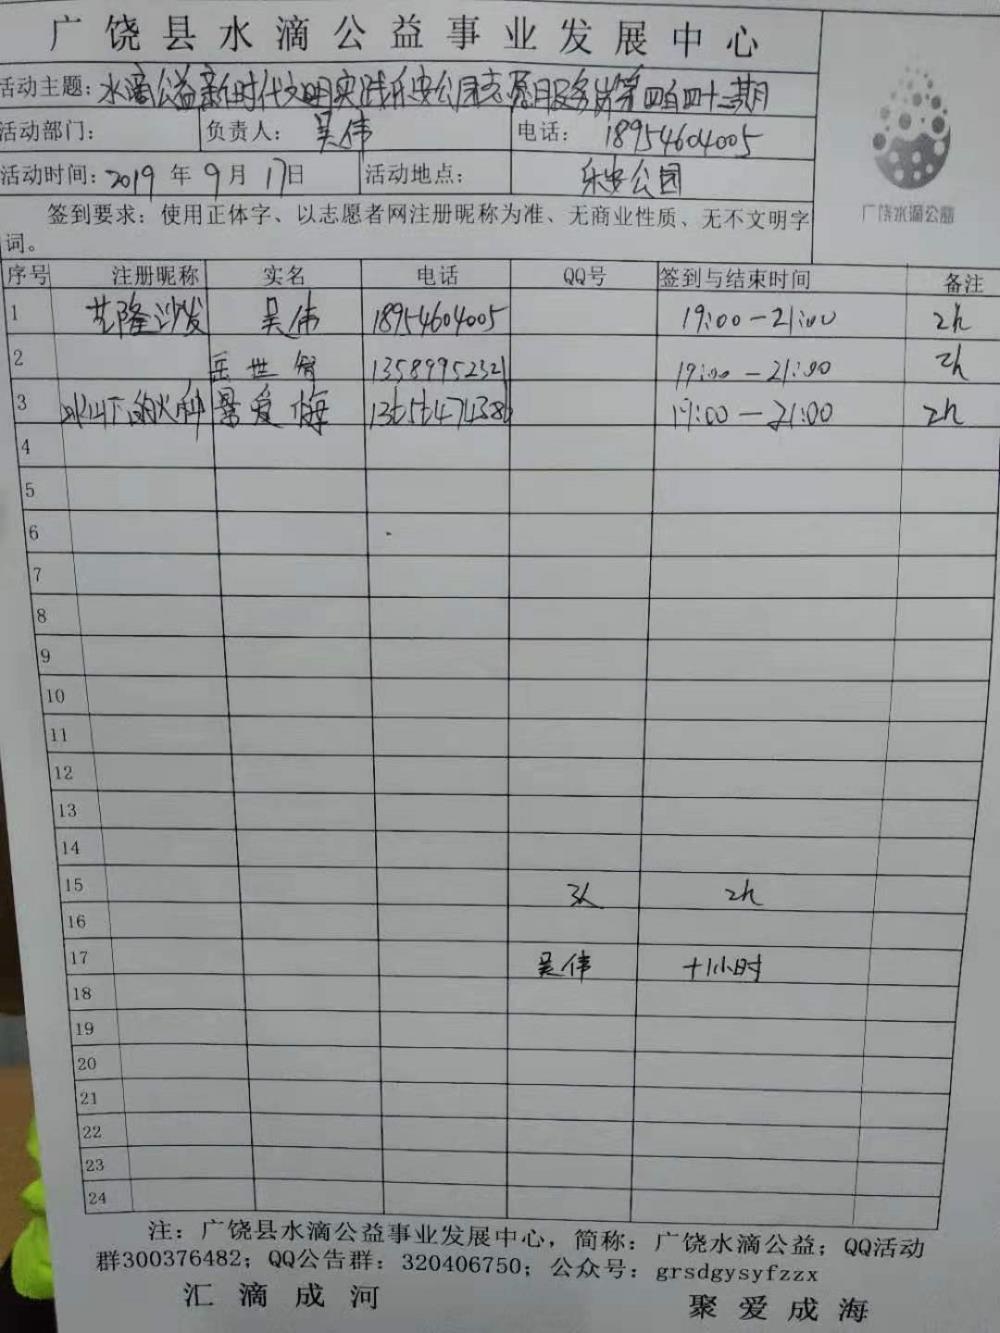 广饶县水滴公益事业发展中心
活动主题: 水滴公益新时代文明实践乐安公园志愿服务岗第四百四十二期
活动部门: 负责人: 吴伟 电话: 18954604005
活动时间: 2019 年 9 月 17日 活动地点: 乐安公园
广饶水滴公益
签到要求: 使用正体字、以志愿者网注册昵称为准、无商业性质、无不文明字
词。
序号 注册昵称 实名 电话 QQ号 签到与结束时间 备注
1 芝隆沙发 吴伟 18954604005 19:00-21:00 2h
2 岳世 13589952321 19:00-21:00 2h
3 冰山下的火种 景爱梅 19:00-21:00 2h
4
5
6
7
8
9
10
11
12
13
14
15 3人 2h
16
17 吴伟 +1小时
18
19
20
21
22
23
24
注: 广饶县水滴公益事业发展中心, 简称: 广饶水滴公益; QQ活动
群300376482; QQ公告群: 320406750; 公众号: grsdgysyfzzx
汇滴成河 聚爱成海